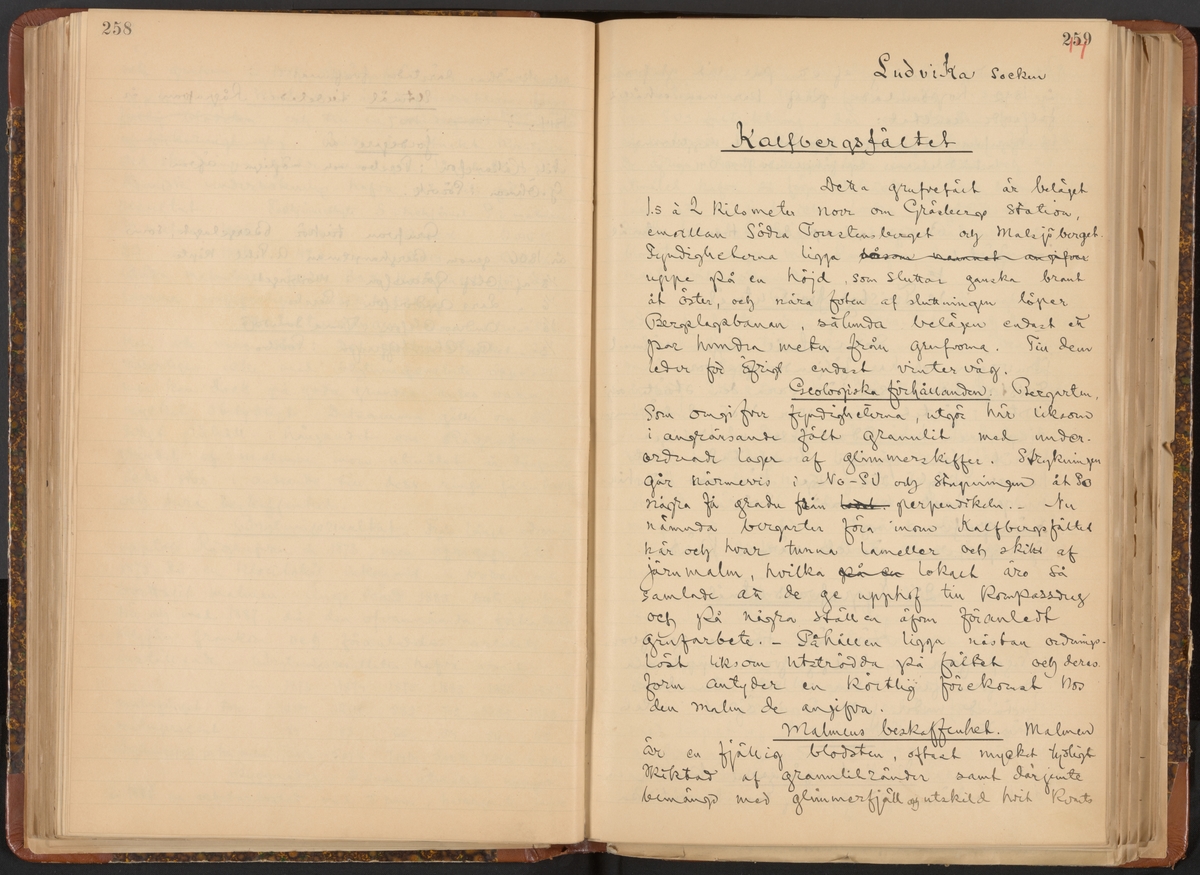 258
259
17
Ludvika Socken
Kalfbergsfältet
Detta grufvefält är beläget
1.5 à 2 Kilometer norr om Gräsbergs Station,
emellan Södra Torrstensberget och Malsjöberget.
Fyndigheterna ligga såsom namnet angifver
uppe på en höjd, som sluttar ganska brant
åt öster, och nära foten af sluttningen löper
Bergslagsbanan, sålunda belägen endast ett
par hundra meter från grufvorna. Till dem
leder för öfrigt endast vinterväg.
Geologiska förhållanden. Bergarten,
Som omgifver fyndigheterna, utgör här liksom
i angränsande fält granulit med under-
ordnade lager af glimmerskiffer. Strykningen
går närmevis i No-SV och stupningen åt So
några få grader från lod. perpendikeln. - Nu
nämnda bergarter föra inom Kalfbergsfältet
här och hvar tunna lameller och skikt af
järnmalm, hvilka på en lokalt äro så
samlade att de ge upphof till Kompassdrag
och på några ställen äfven föranledt
grufarbete. - Påhållen ligga nästan ordnings-
löst liksom utströdda på fältet och deras
form antyder en körtlig förekomst hos
den malm de angifva.
Malmens beskaffenhet. Malmen
är en fjällig blodsten, oftast mycket tydligt
skiktad af granulitränder samt därjemte
bemängd med glimmerfjäll och utskild hvit Kvarts